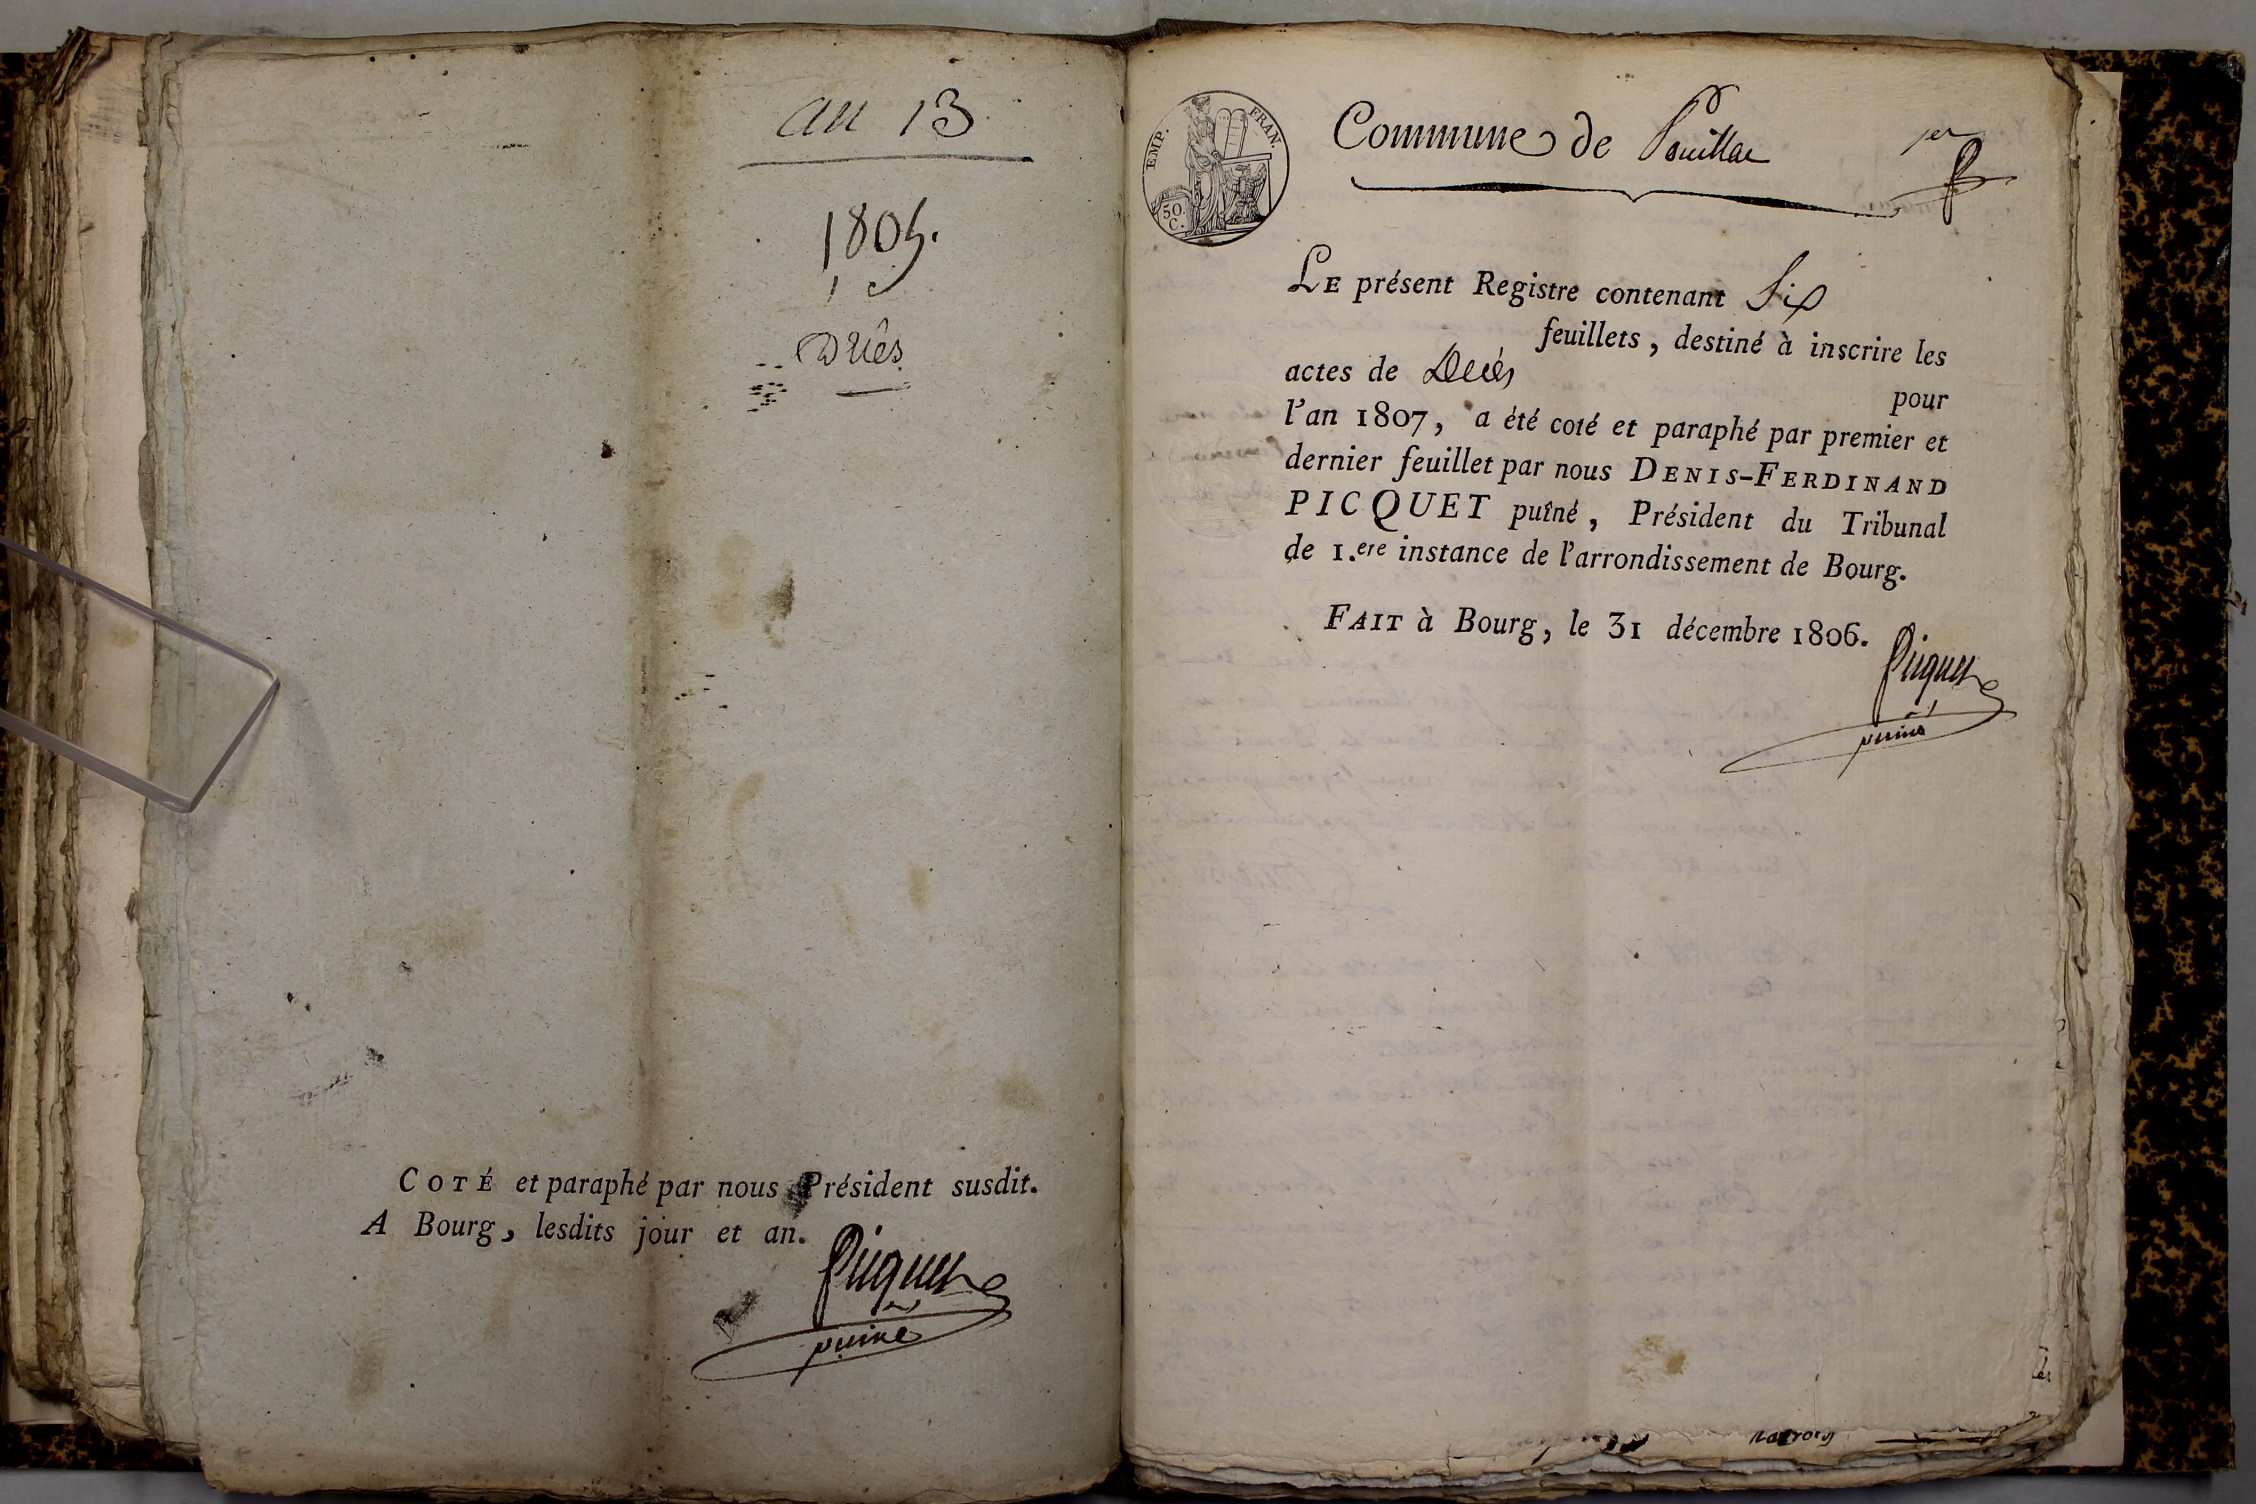 an 13
1805.
Décès
COTÉ et paraphé par nous Président susdit.
A Bourg, lesdits jour et an.
Picquet
puiné
EMP. FRAN.
50. C.
Commune de Pouillac
1er
LE présent Registre contenant Six
feuillets, destiné à inscrire les
actes de Décès
pour
l'an 1807, a été coté et paraphé par premier et
dernier feuillet par nous DENIS-FERDINAND
PICQUET puîné, Président du Tribunal
de 1.ere instance de l'arrondissement de Bourg.
FAIT à Bourg, le 31 décembre 1806.
Picquet
puiné